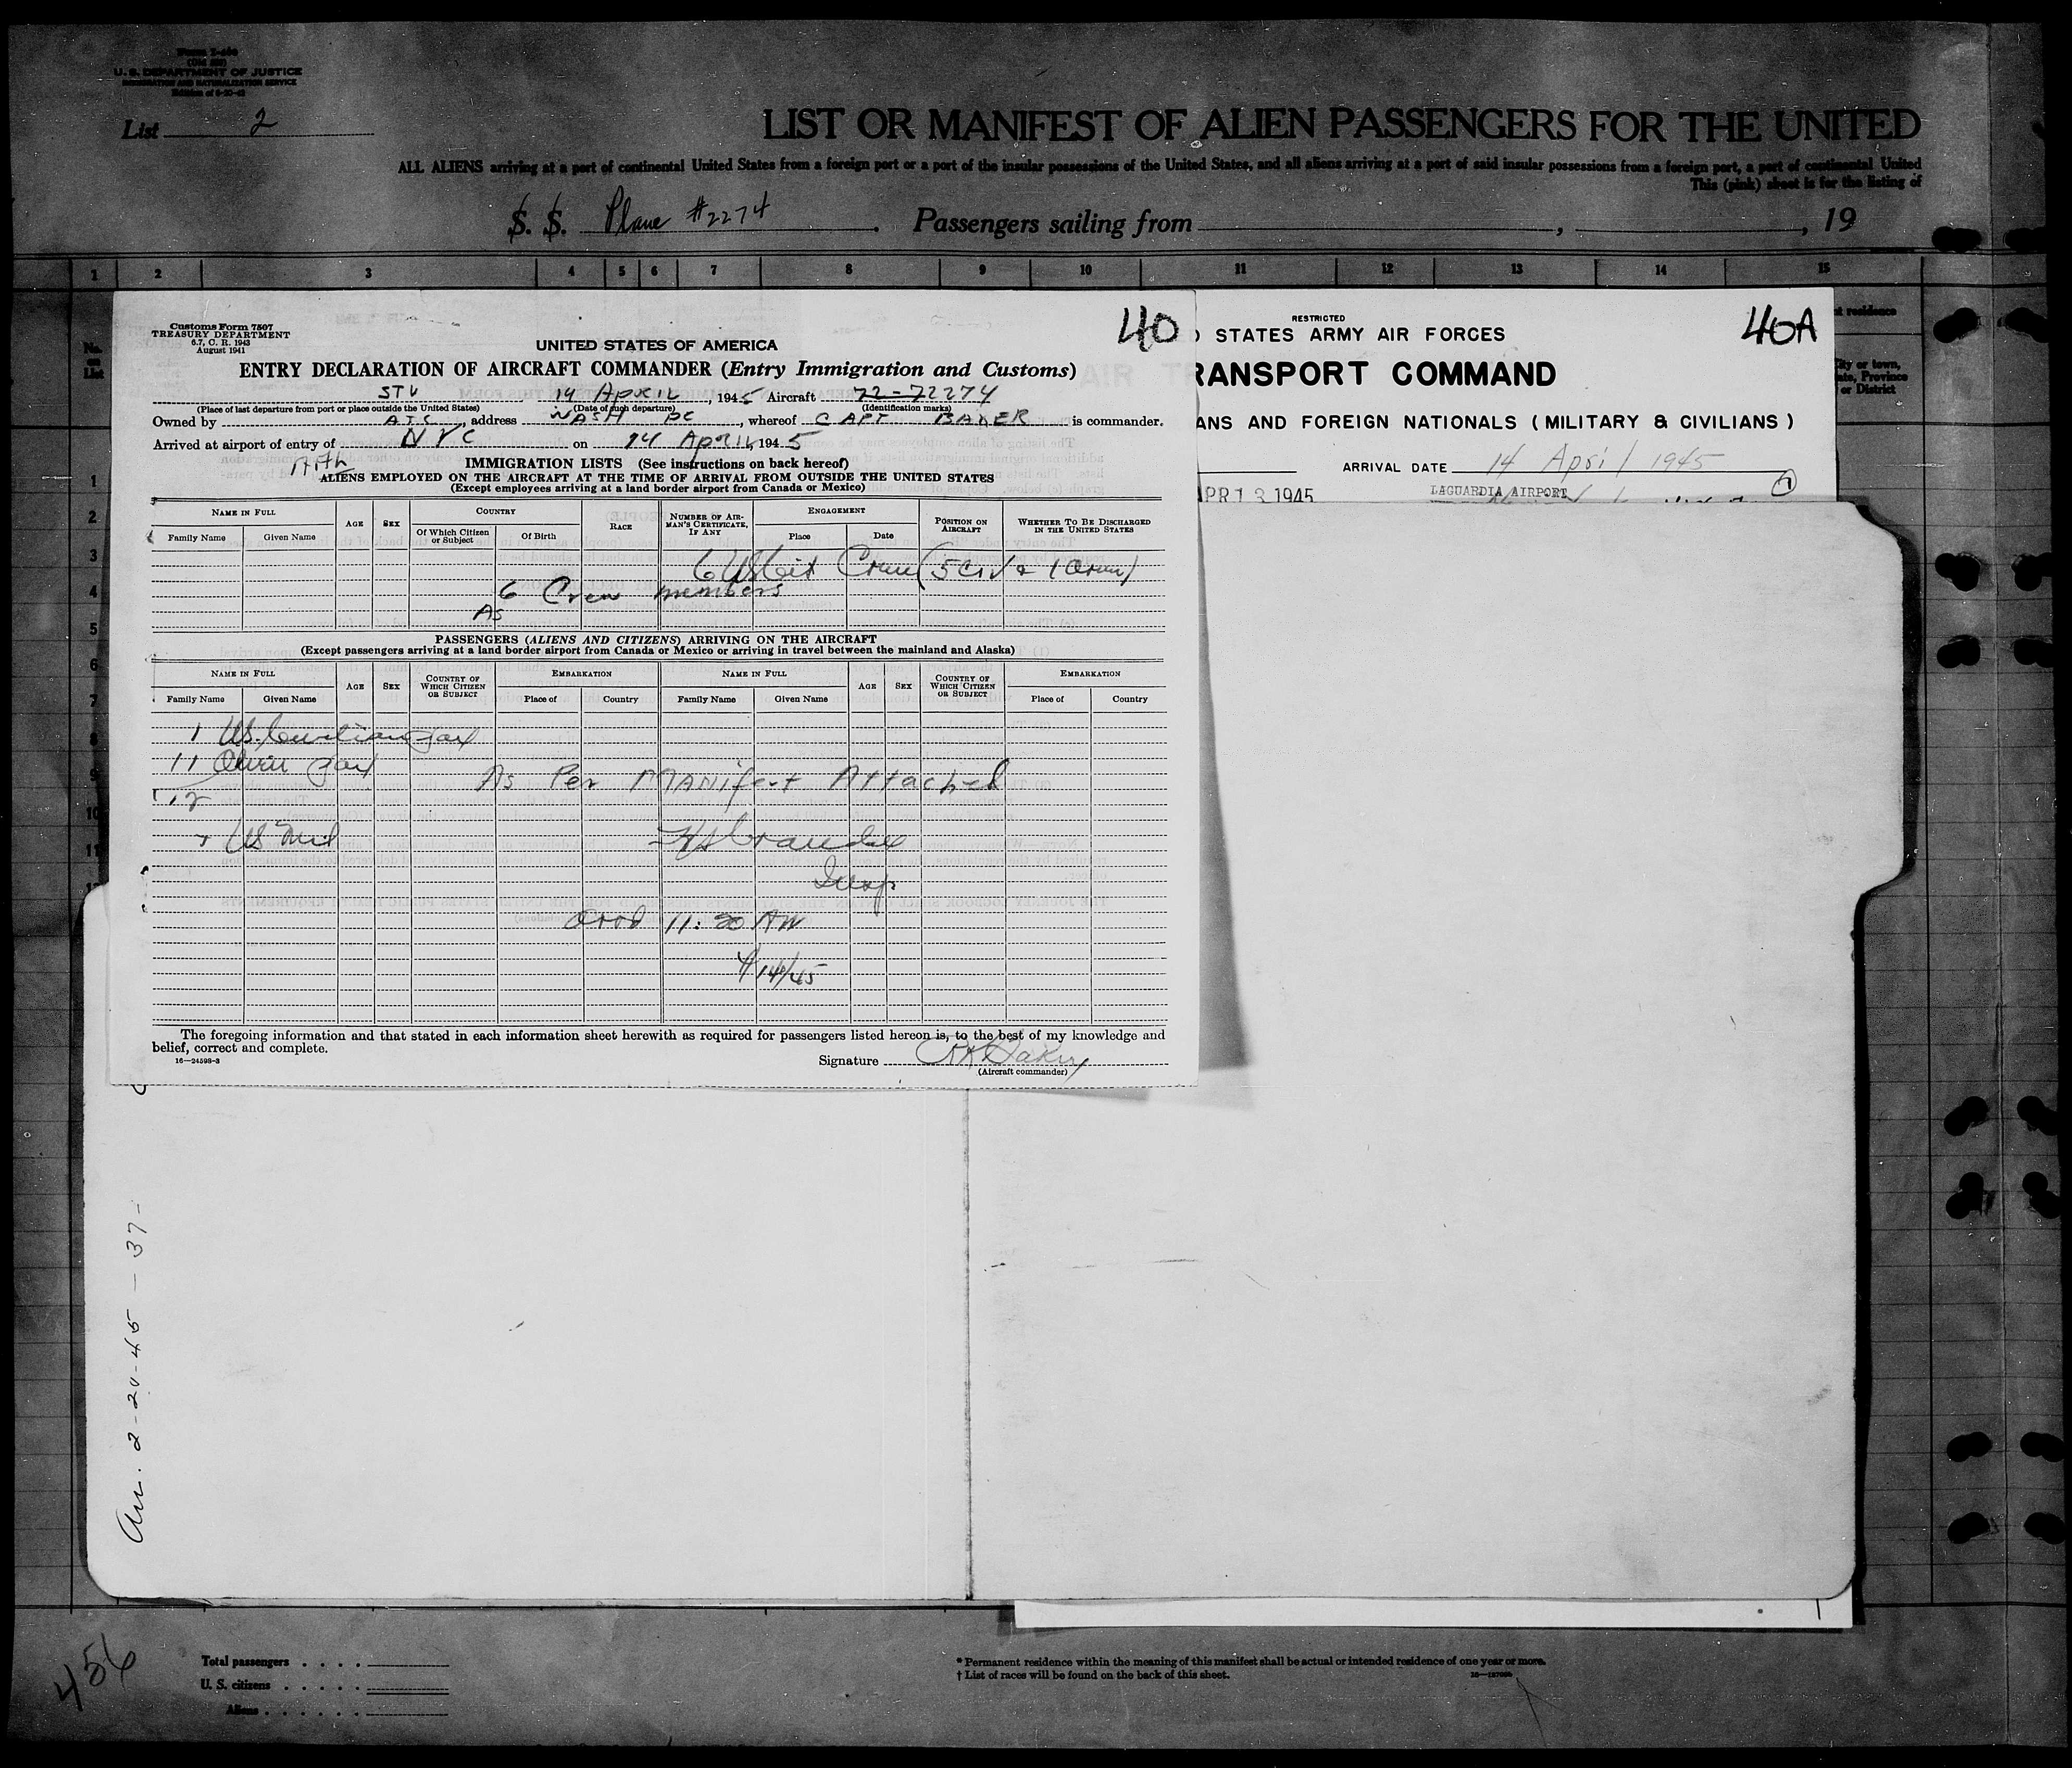 U. S. DEPARTMENT OF JUSTICE
IMMIGRATION AND NATURALIZATION SERVICE
List 2
LIST OR MANIFEST OF ALIEN PASSENGERS FOR THE UNITED
ALL ALIENS arriving at a port of continental United States from a foreign port or a port of the insular possessions of the United States, and all aliens arriving at a port of said insular possessions from a foreign port, a port of continental United
This (pink) sheet is for the listing of
S. S. Plane #2274. Passengers sailing from , , 19
1 2 3 4 5 6 7 8 9 10 11 12 13 14 15
Customs Form 7507
TREASURY DEPARTMENT
6.7, C. R. 1943
August 1941
40
UNITED STATES OF AMERICA
ENTRY DECLARATION OF AIRCRAFT COMMANDER (Entry Immigration and Customs)
STV 14 APRIL, 1945 Aircraft 72-72274
(Place of last departure from port or place outside the United States) (Date of such departure) (Identification marks)
Owned by ATC, address WASH DC, whereof CAPT BAKER is commander.
Arrived at airport of entry of NYC on 14 April, 1945
IMMIGRATION LISTS (See instructions on back hereof)
ALIENS EMPLOYED ON THE AIRCRAFT AT THE TIME OF ARRIVAL FROM OUTSIDE THE UNITED STATES
(Except employees arriving at a land border airport from Canada or Mexico)
NAME IN FULL AGE SEX COUNTRY RACE NUMBER OF AIRMAN'S CERTIFICATE, IF ANY ENGAGEMENT POSITION ON AIRCRAFT WHETHER TO BE DISCHARGED IN THE UNITED STATES
Family Name Given Name Of Which Citizen or Subject Of Birth Place Date
6 US Cit Crew (5 Civ &
6 Crew members
As
PASSENGERS (ALIENS AND CITIZENS) ARRIVING ON THE AIRCRAFT
(Except passengers arriving at a land border airport from Canada or Mexico or arriving in travel between the mainland and Alaska)
NAME IN FULL AGE SEX COUNTRY OF WHICH CITIZEN OR SUBJECT EMBARKATION NAME IN FULL AGE SEX COUNTRY OF WHICH CITIZEN OR SUBJECT EMBARKATION
Family Name Given Name Place of Country Family Name Given Name Place of Country
1 US. Civilian
11
As Per MANifest Attached
12
7 US Mil
Insp
11:20 AM
4/14/45
The foregoing information and that stated in each information sheet herewith as required for passengers listed hereon is, to the best of my knowledge and
belief, correct and complete.
16—24598-3
Signature
(Aircraft commander)
RESTRICTED
STATES ARMY AIR FORCES
40A
RANSPORT COMMAND
ANS AND FOREIGN NATIONALS (MILITARY & CIVILIANS)
ARRIVAL DATE 14 April 1945
PR 13 1945
LAGUARDIA AIRPORT
No. on List
1
2
3
4
5
6
7
8
9
10
11
Arr. 2-20-45 — 37-
456
Total passengers . . . .
U. S. citizens . . . . .
Aliens . . . . . .
* Permanent residence within the meaning of this manifest shall be actual or intended residence of one year or more.
† List of races will be found on the back of this sheet.